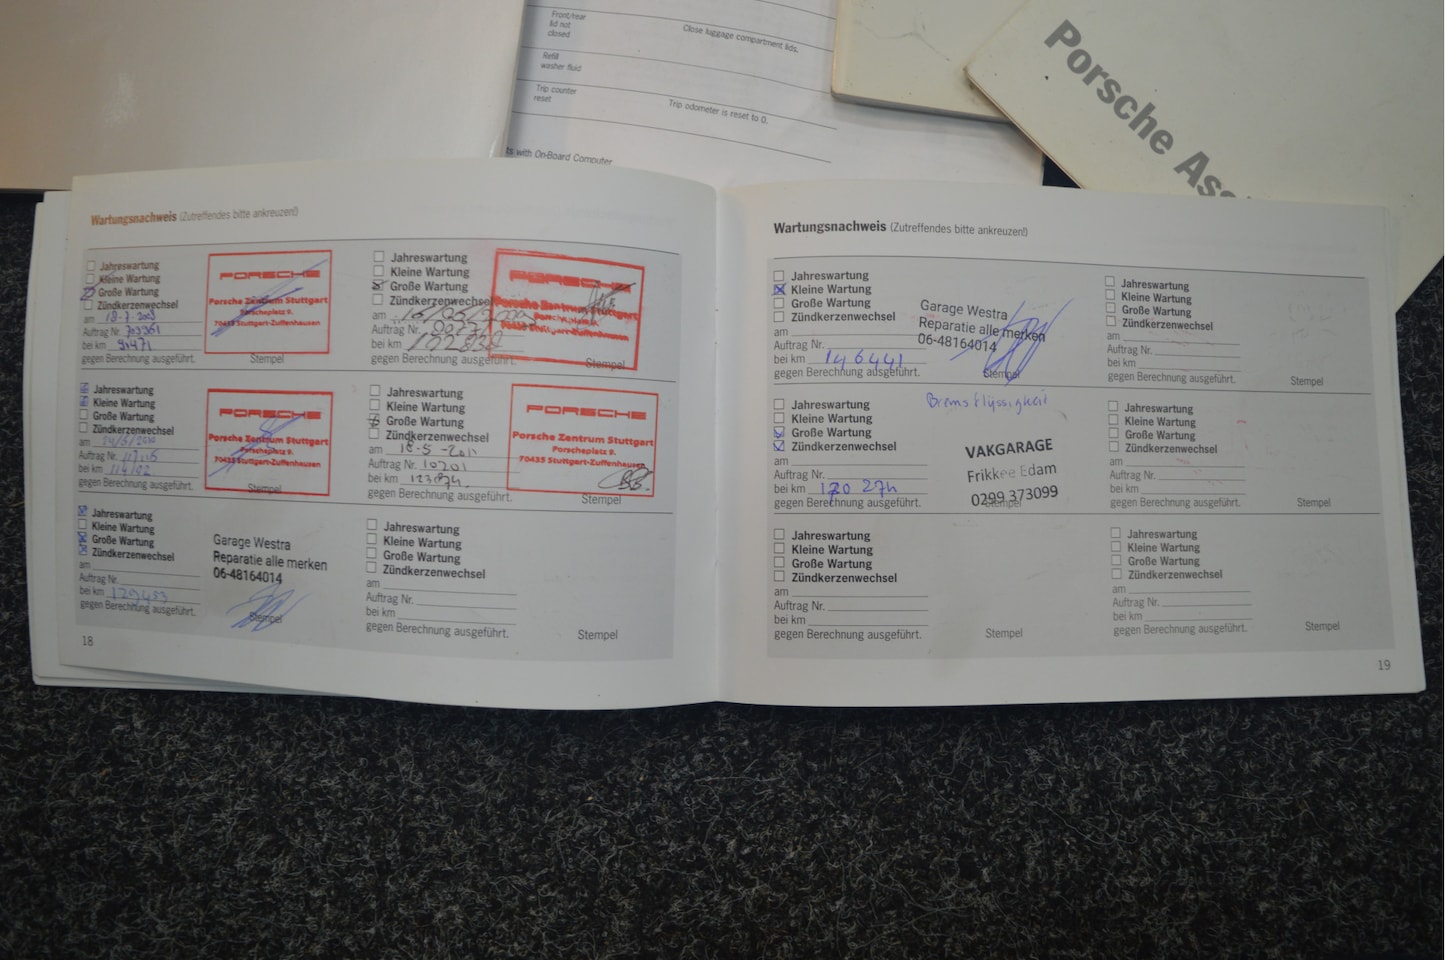 Front/rear
lid not
closed
Close luggage compartment lids.
Refill
washer fluid
Trip counter
reset
Trip odometer is reset to 0.
with On-Board Computer
Porsche Ass
Wartungsnachweis (Zutreffendes bitte ankreuzen!)
Jahreswartung
Kleine Wartung
Große Wartung
Zündkerzenwechsel
am
Auftrag Nr.
bei km 91471
gegen Berechnung ausgeführt.
PORSCHE
Porsche Zentrum Stuttgart
Porscheplatz 9.
70435 Stuttgart-Zuffenhausen
Stempel
Jahreswartung
Kleine Wartung
Große Wartung
Zündkerzenwechsel
am
Auftrag Nr.
bei km
gegen Berechnung ausgeführt.
PORSCHE
Porsche Zentrum Stuttgart
Porscheplatz 9.
70435 Stuttgart-Zuffenhausen
Stempel
Jahreswartung
Kleine Wartung
Große Wartung
Zündkerzenwechsel
am 14/5/2010
Auftrag Nr.
bei km
gegen Berechnung ausgeführt.
PORSCHE
Porsche Zentrum Stuttgart
Porscheplatz 9.
70435 Stuttgart-Zuffenhausen
Stempel
Jahreswartung
Kleine Wartung
Große Wartung
Zündkerzenwechsel
am 18-5-2011
Auftrag Nr. 10701
bei km
gegen Berechnung ausgeführt.
PORSCHE
Porsche Zentrum Stuttgart
Porscheplatz 9.
70435 Stuttgart-Zuffenhausen
Stempel
Jahreswartung
Kleine Wartung
Große Wartung
Zündkerzenwechsel
am
Auftrag Nr.
bei km 129483
gegen Berechnung ausgeführt.
Garage Westra
Reparatie alle merken
06-48164014
Stempel
Jahreswartung
Kleine Wartung
Große Wartung
Zündkerzenwechsel
am
Auftrag Nr.
bei km
gegen Berechnung ausgeführt.
Stempel
18
Wartungsnachweis (Zutreffendes bitte ankreuzen!)
Jahreswartung
Kleine Wartung
Große Wartung
Zündkerzenwechsel
am
Auftrag Nr.
bei km 146441
gegen Berechnung ausgeführt.
Garage Westra
Reparatie alle merken
06-48164014
Stempel
Jahreswartung
Kleine Wartung
Große Wartung
Zündkerzenwechsel
am
Auftrag Nr.
bei km
gegen Berechnung ausgeführt.
Stempel
Jahreswartung
Kleine Wartung
Große Wartung
Zündkerzenwechsel
am
Auftrag Nr.
bei km
gegen Berechnung ausgeführt.
Bremsflüssigkeit
VAKGARAGE
Frikkee Edam
0299 373099
Stempel
Jahreswartung
Kleine Wartung
Große Wartung
Zündkerzenwechsel
am
Auftrag Nr.
bei km
gegen Berechnung ausgeführt.
Stempel
Jahreswartung
Kleine Wartung
Große Wartung
Zündkerzenwechsel
am
Auftrag Nr.
bei km
gegen Berechnung ausgeführt.
Stempel
Jahreswartung
Kleine Wartung
Große Wartung
Zündkerzenwechsel
am
Auftrag Nr.
bei km
gegen Berechnung ausgeführt.
Stempel
19